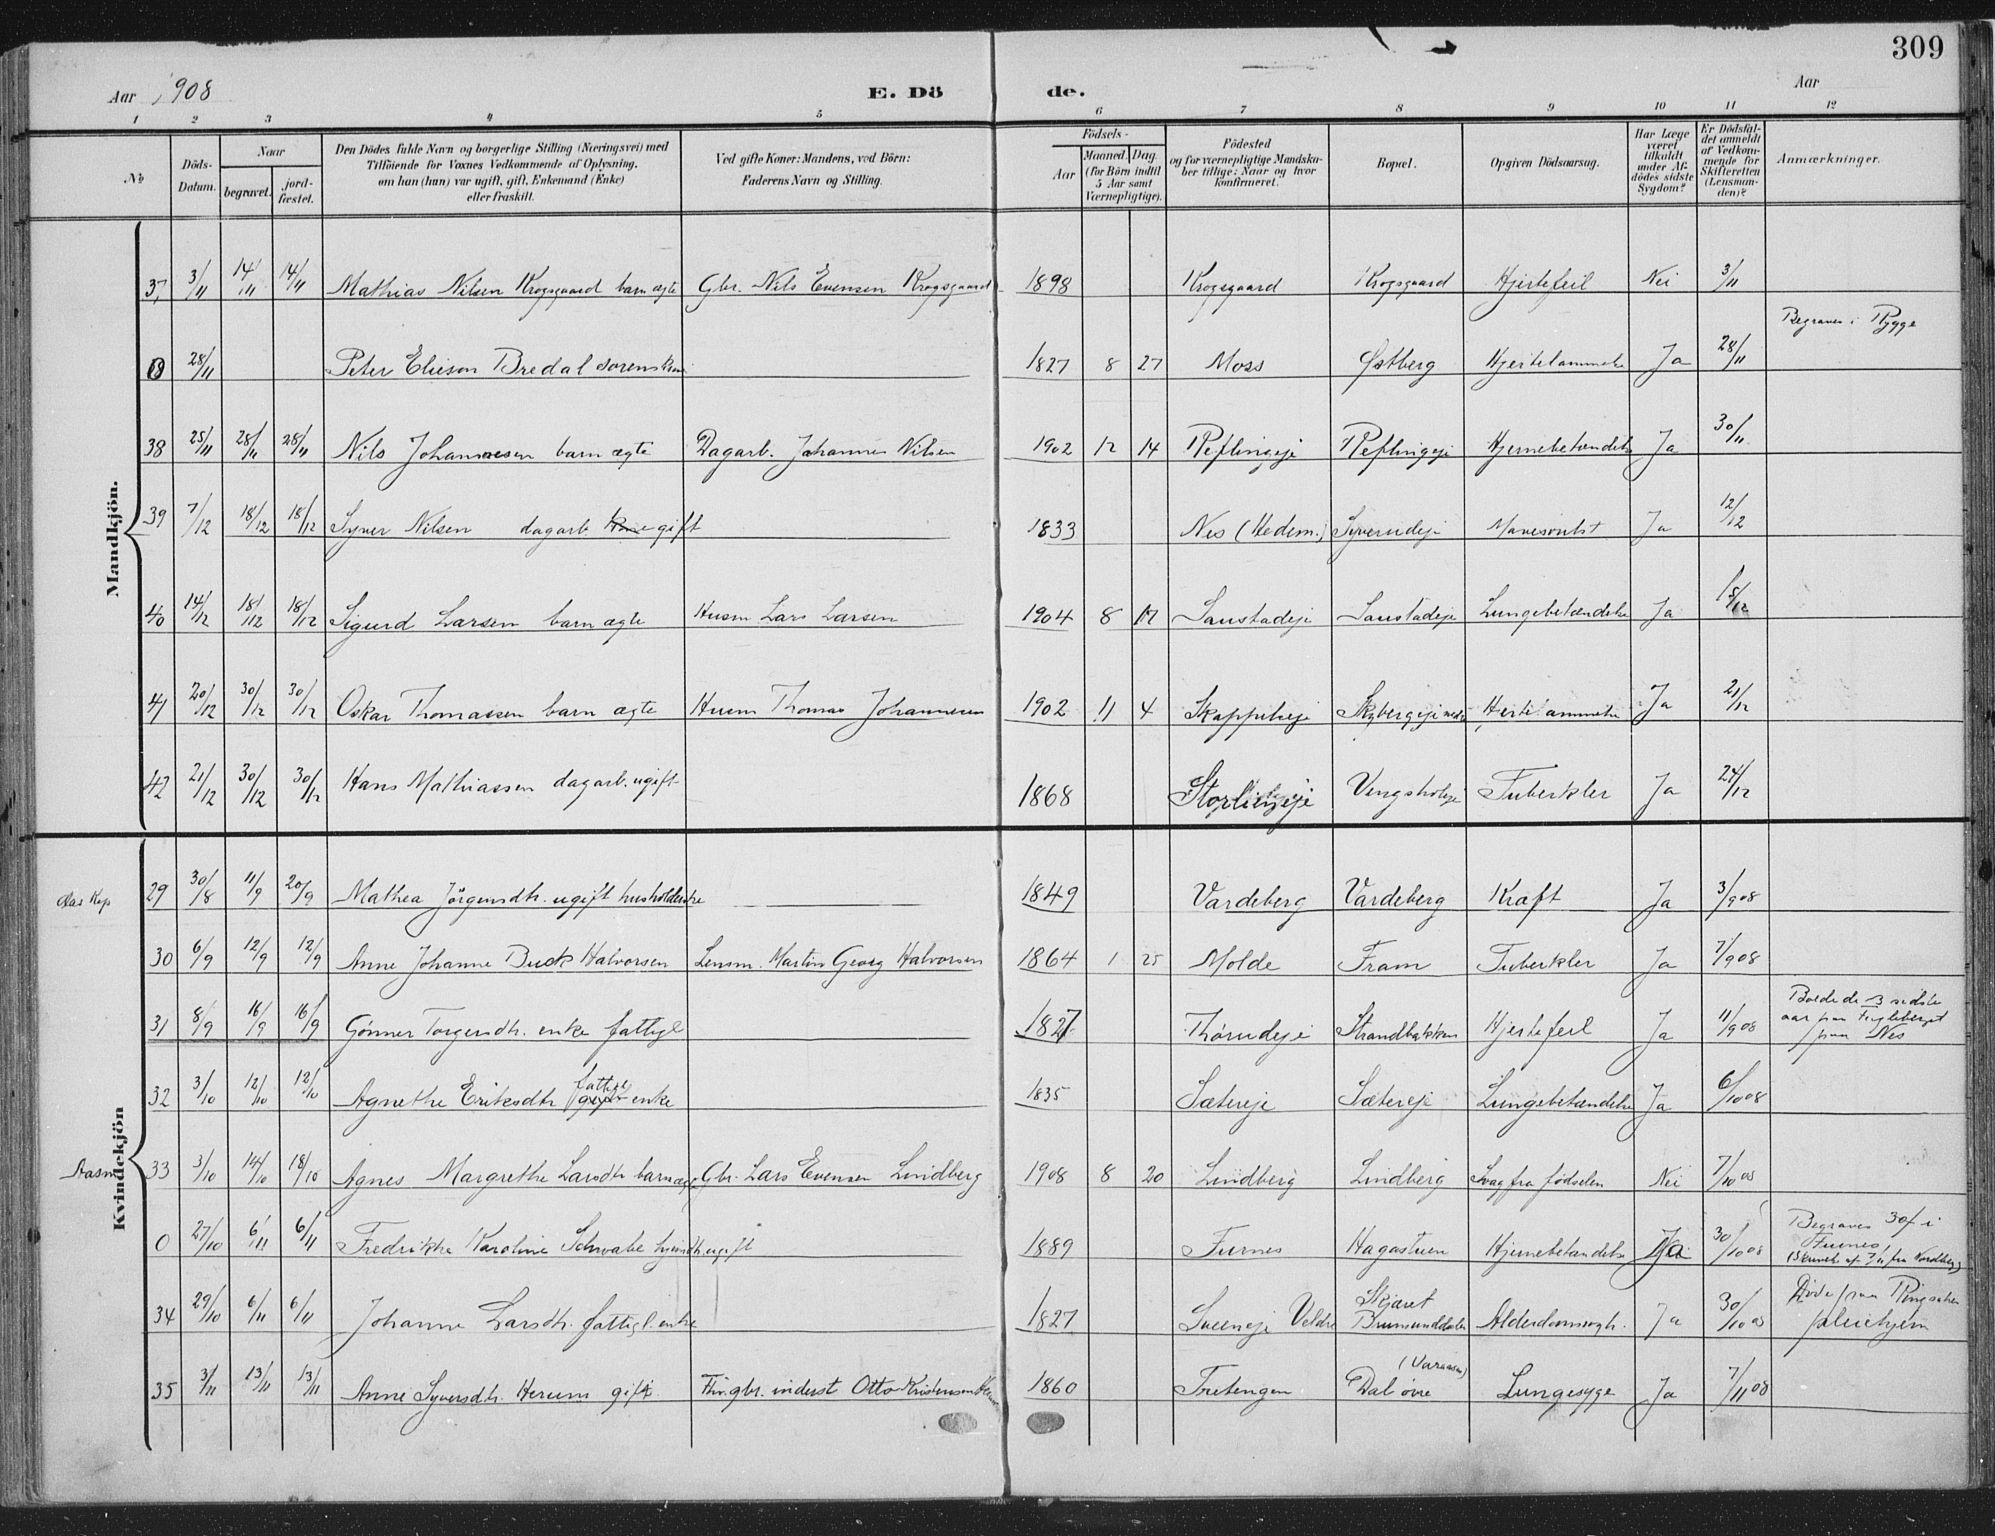 309
Aar 1908 E. Dö de. Aar
1 2 3 4 5 6 7 8 9 10 11 12
№
Döds-Datum.
Naar
begravet.
jord-fæstet.
Den Dödes fulde Navn og borgerlige Stilling (Næringsvei) med
Tilföiende for Voxnes Vedkommende af Oplysning,
om han (hun) var ugift, gift, Enkemand (Enke)
eller fraskilt.
Ved gifte Koner: Mandens, ved Börn:
Faderens Navn og Stilling.
Födsels-
Aar
Maaned. Dag.
(for Börn indtil
5 Aar samt
Værnepligtige).
Födested
og for værnepligtige Mandska-
ber tillige: Naar og hvor
konfirmeret.
Bopæl.
Opgiven Dödsaarsag.
Har Læge
været
tilkaldt
under Af-
dödes sidste
Sygdom?
Er Dödsfal-
det anmeldt
af Vedkom-
mende for
Skifteretten
(Lensman-
den)?
Anmærkninger.
Mandkjön.
37 3/11 14/11 14/11 Mathias Nilsen Krogsgaard barn ægte Gbr. Nils Evensen Krogsgaard 1898 Krogsgaard Krogsgaard Hjertefeil Nei 3/11
Begraves i Rygge
0 28/11 Peter Elieson Bredal sorenskr. 1827 8 27 Moss Østberg Hjertelammelse Ja 28/11
38 25/11 28/11 28/11 Nils Johannesen barn ægte Dagarb. Johannes Nilsen 1902 12 14 Reflingeje Reflingeje Hjernebetændelse Ja 30/11
39 7/12 18/12 18/12 Syver Nilsen dagarb. gift 1833 Nes (Hedem.) Syverudeje Ja 12/12
40 14/12 18/12 18/12 Sigurd Larsen barn ægte Husm Lars Larsen 1904 8 17 Saustadeje Saustadeje Lungebetændelse Ja 15/12
41 20/12 30/12 30/12 Oskar Thomassen barn ægte Husm Thomas Johannesen 1902 11 4 Skappelseje Skybergeje Hjertelammelse Ja 21/12
42 21/12 30/12 30/12 Hans Mathiassen dagarb. ugift 1868 Vengsholeje Tuberkler Ja 24/12
Kvindekjön
Aas Kap 29 30/8 11/9 20/9 Mathea Jörgensdtr. ugift husholderske 1849 Vardeberg Vardeberg Kræft Ja 3/9 08
30 6/9 12/9 12/9 Anne Johanne Buck Halvorsen Lensm. Martin Georg Halvorsen 1864 1 25 Molde Fram Tuberkler Ja 7/9 08
Boede de 3 sidste
aar paa Fugleberget
paa Nes
31 8/9 16/9 16/9 Gönner Torgersdtr. enke fattigl 1827 Thorudeje Strandbakken Hjertefeil Ja 11/9 08
32 3/10 12/10 12/10 Agnethe Eriksdtr fattigl enke 1835 Sætereje Sætereje Lungebetændelse Ja 6/10 08
Aasm 33 3/10 14/10 18/10 Agnes Margrethe Larsdtr barn ægte Gbr. Lars Evensen Lindberg 1908 8 20 Lindberg Lindberg Svag fra fødselen Nei 7/10 08
Begraves 30/ i
Furnes
0 27/10 6/11 6/11 Fredrikke Karoline Schwabe ugift 1889 Furnes Hagastuen Hjernebetændelse Ja 30/10 08
Døde paa Ringsaker
pleiehjem
34 29/10 6/11 6/11 Johanne Larsdtr. fattigl. enke 1827 Sveeneje Veldre Skjæret Brumunddalen Alderdomssvagh. Ja 30/10 08
35 3/11 13/11 13/11 Anne Syversdtr. Herum gift gbr. inderst Otto Kristensen 1860 Tretengen Dal øvre Lungesyge Ja 7/11 08